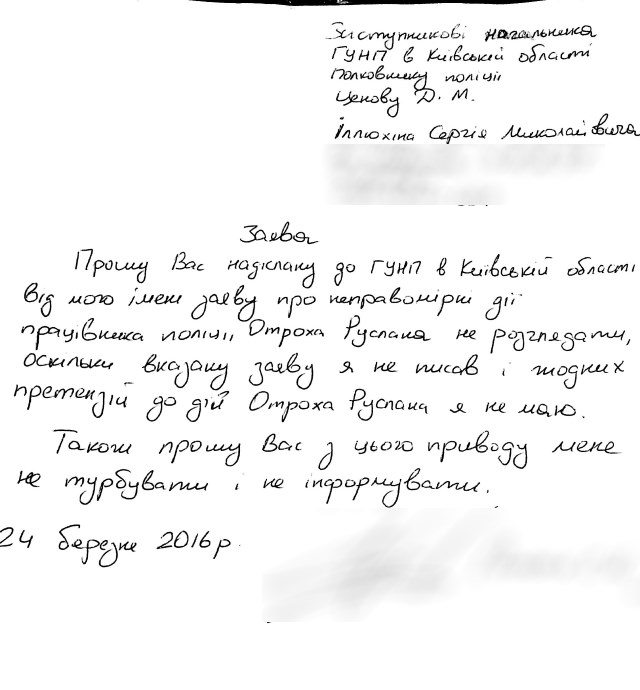 Заступникові начальника
ГУНП в Київській області
полковнику поліції
Ценову Д. М.
Іллюхіна Сергія Миколайовича
Заява
Прошу Вас надіслану до ГУНП в Київській області
від мого імені заяву про неправомірні дії
працівника поліції, Отроха Руслана не розглядати,
оскільки вказану заяву я не писав і жодних
претензій до дій Отроха Руслана я не маю.
Також прошу Вас з цього приводу мене
не турбувати і не інформувати.
24 березне 2016 р.